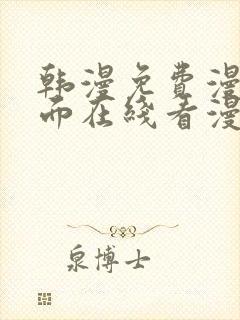 韩漫免费漫
而在线看漫
泉博士